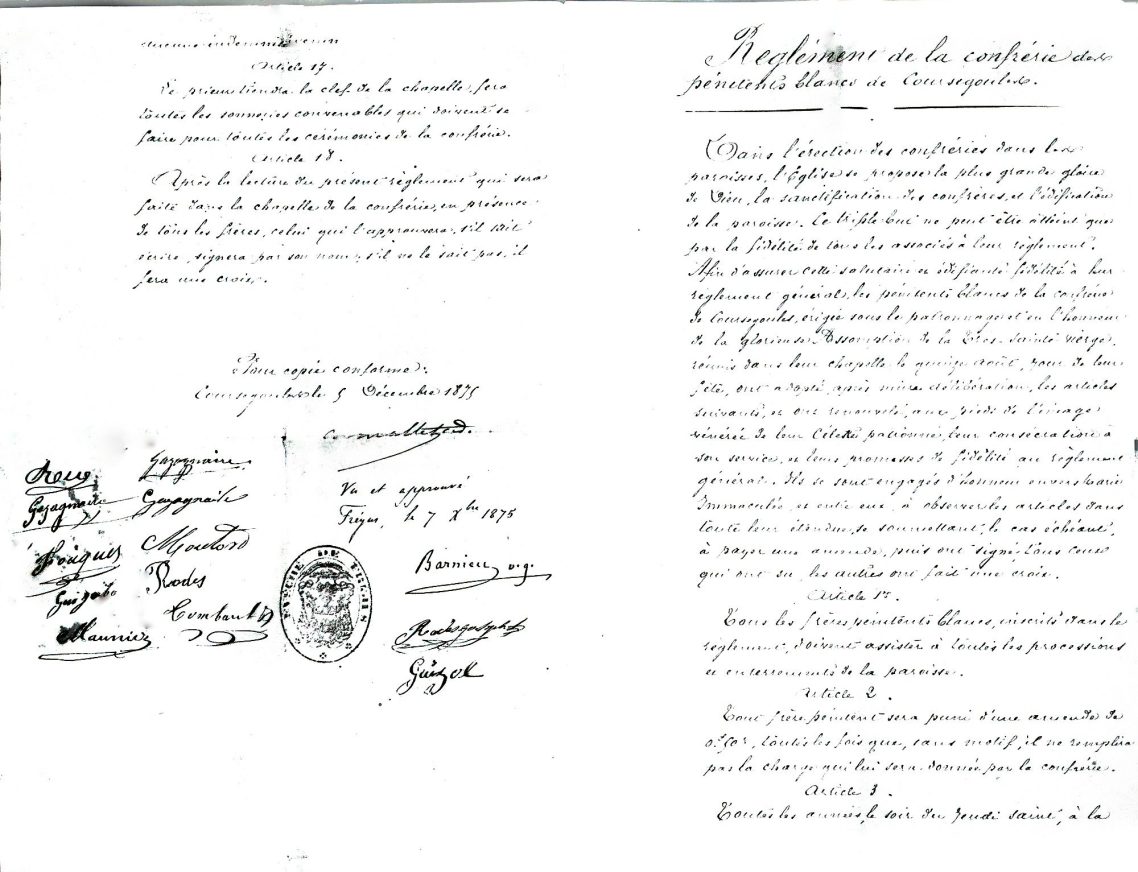 aucune indemnité
Article 17.
Le prieur tiendra la clef de la chapelle, fera
toutes les sonneries convenables qui doivent se
faire pour toutes les cérémonies de la confrérie.
Article 18.
Après la lecture du présent règlement qui sera
faite dans la chapelle de la confrérie, en présence
de tous les frères, celui qui l'approuvera, s'il sait
écrire, signera par son nom; s'il ne le sait pas, il
fera une croix.
Pour copie conforme:
Coursegoules le 5 Décembre 1875
Gazagnaire
Gazagnaire
Gazagnaire
Fouques
Moutord
Rodes
Maunier
Vu et approuvé
Fréjus, le 7 Xbre 1875
Barnieu v.g.
EVECHE DE FREJUS
Rodes Joseph
Guizol
Reglément de la confrérie des
pénitents blancs de Coursegoules.
Dans l'érection des confréries dans les
paroisses, l'Église se propose la plus grande gloire
de Dieu, la sanctification des confrères, et l'édification
de la paroisse. Ce triple but ne peut être atteint que
par la fidélité de tous les associés à leur règlement.
Afin d'assurer cette salutaire et édifiante fidélité à leur
règlement général, les pénitents blancs de la confrérie
de Coursegoules, érigée sous le patronnage et en l'honneur
de la glorieuse Assomption de la Très-Sainte Vierge,
réunis dans leur chapelle le quinze août, jour de leur
fête, ont adopté, après mûre délibération, les articles
suivants, et ont renouvelé, aux pieds de l'image
vénérée de leur Céleste patronne, leur consécration à
son service, et leurs promesses de fidélité au règlement
général. Ils se sont engagés d'honneur envers Marie
Immaculée, et entre eux, à observer les articles dans
toute leur étendue, se soumettant, le cas échéant,
à payer une amende, puis ont signé tous ceux
qui ont su, les autres ont fait une croix.
Article 1er.
Tous les frères pénitents blancs, inscrits dans le
règlement, doivent assister à toutes les processions
et enterrements de la paroisse.
Article 2.
Tout frère pénitent sera puni d'une amende de
0f 50c, toutes les fois que, sans motif, il ne remplira
pas la charge qui lui sera donnée par la confrérie.
Article 3.
Toutes les années, le soir du jeudi saint, à la